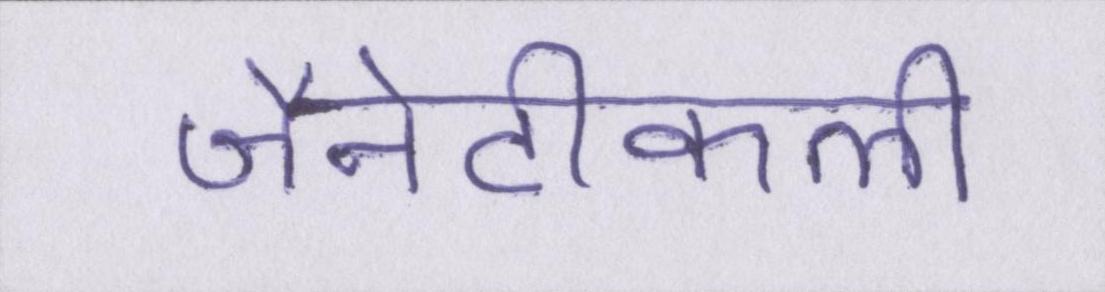 जैनेटीकली